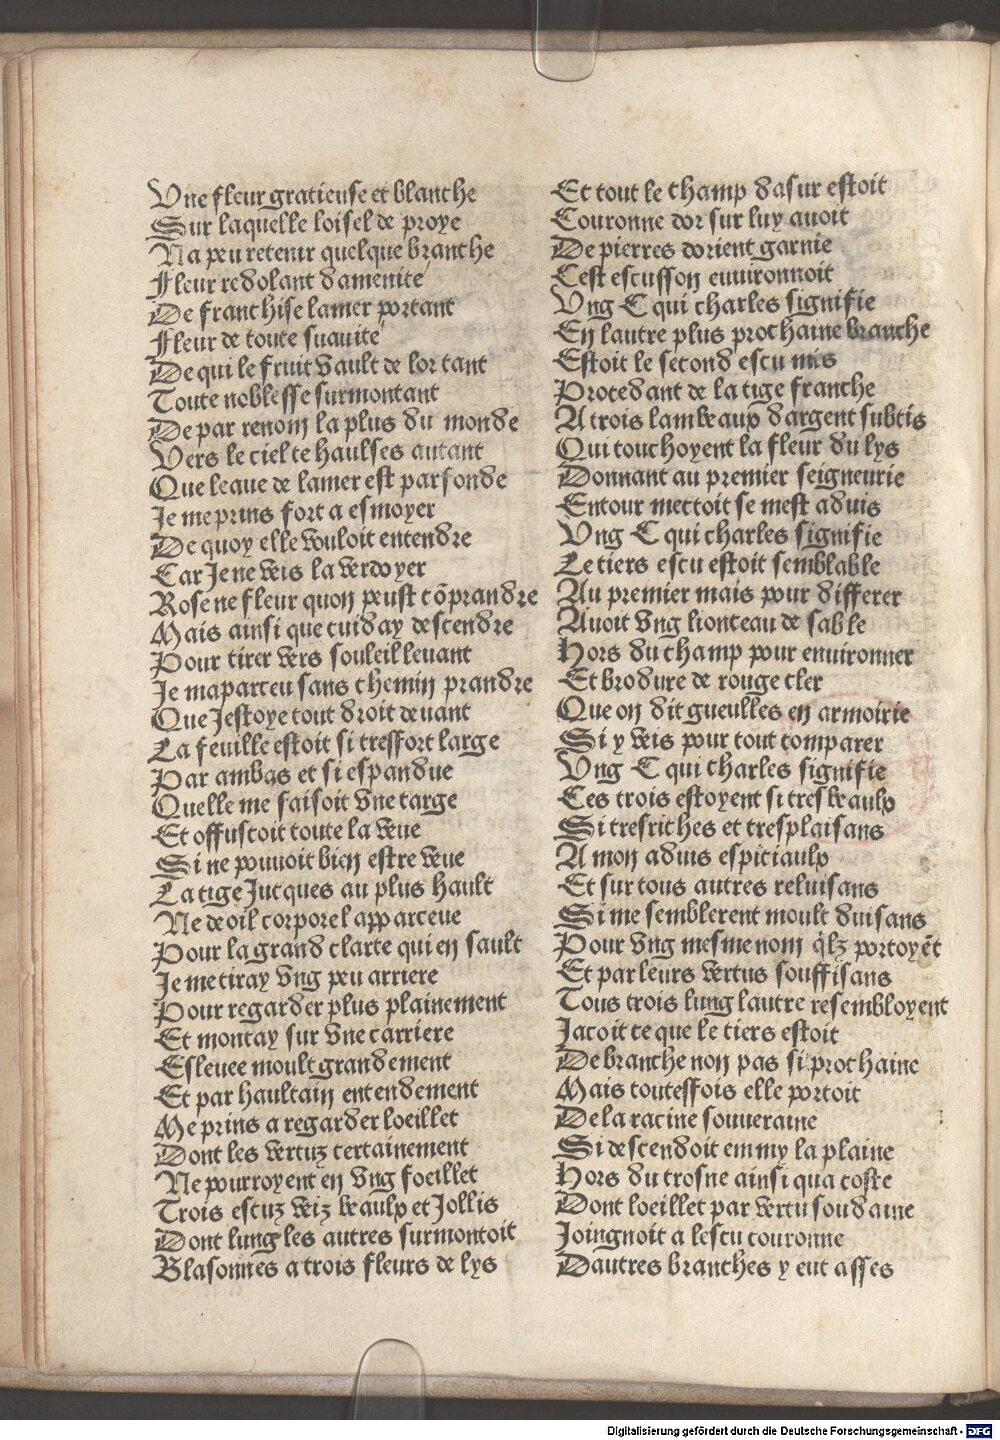 Vne fleur gratieuse et blanche
Sur laquelle loisel de proye
Na peu retenir quelque branche
Fleur redolant damenite
De franchise lamer portant
Fleur de toute suauite
De qui le fruit vault de lor tant
Toute noblesse surmontant
De par renom la plus du monde
Vers le ciel te haulses autant
Que leaue de lamer est parfonde
Je me prins fort a esmoyer
De quoy elle vouloit entendre
Car Je ne veis la verdoyer
Rose ne fleur quon peust cõprandre
Mais ainsi que cuiday descendre
Pour tirer vers souleil leuant
Je maparceu sans chemin prandre
Que Jestoye tout droit deuant
La feuille estoit si tresfort large
Par ambas et si espandue
Quelle me faisoit vne targe
Et offuscoit toute la veue
Si ne pouuoit bien estre veue
La tige Jucques au plus hault
Ne de oil corporel apparceue
Pour la grand clarte qui en sault
Je me tiray vng peu arriere
Pour regarder plus plainement
Et montay sur vne carriere
Esleuee moult grandement
Et par haultain entendement
Me prins a regarder loeillet
Dont les vertuz certainement
Ne pourroyent en vng foeillet
Trois escuz veiz beaulx et Jollis
Dont lung les autres surmontoit
Blasonnes a trois fleurs de lys
Et tout le champ dasur estoit
Couronne dor sur luy auoit
De pierres dorient garnie
Cest escusson enuironnoit
Vng C qui charles signifie
En lautre plus prochaine branche
Estoit le second escu mis
Procedant de la tige franche
A trois lambeaup dargent subtis
Qui touchoyent la fleur du lys
Donnant au premier seigneurie
Entour mettoit se mest aduis
Vng C qui charles signifie
Le tiers escu estoit semblable
Au premier mais pour differer
Auoit vng lionceau de sable
Hors du champ pour enuironner
Et brodure de rouge cler
Que on dit gueulles en armoirie
Si y veis pour tout comparer
Vng C qui charles signifie
Ces trois estoyent si tres beaulx
Si tresriches et tresplaisans
A mon aduis espiciaulx
Et sur tous autres reluisans
Si me semblerent moult duisans
Pour vng mesme nom q̃lz portoyẽt
Et par leurs vertus souffisans
Tous trois lung lautre resembloyent
Jacoit ce que le tiers estoit
De branche non pas si prochaine
Mais toutesfois elle portoit
De la racine souueraine
Si descendoit emmy la plaine
Hors du trosne ainsi qua coste
Dont loeillet par vertu soudaine
Joingnoit a lescu couronne
Dautres branches y eut asses
Digitalisierung gefördert durch die Deutsche Forschungsgemeinschaft - DFG